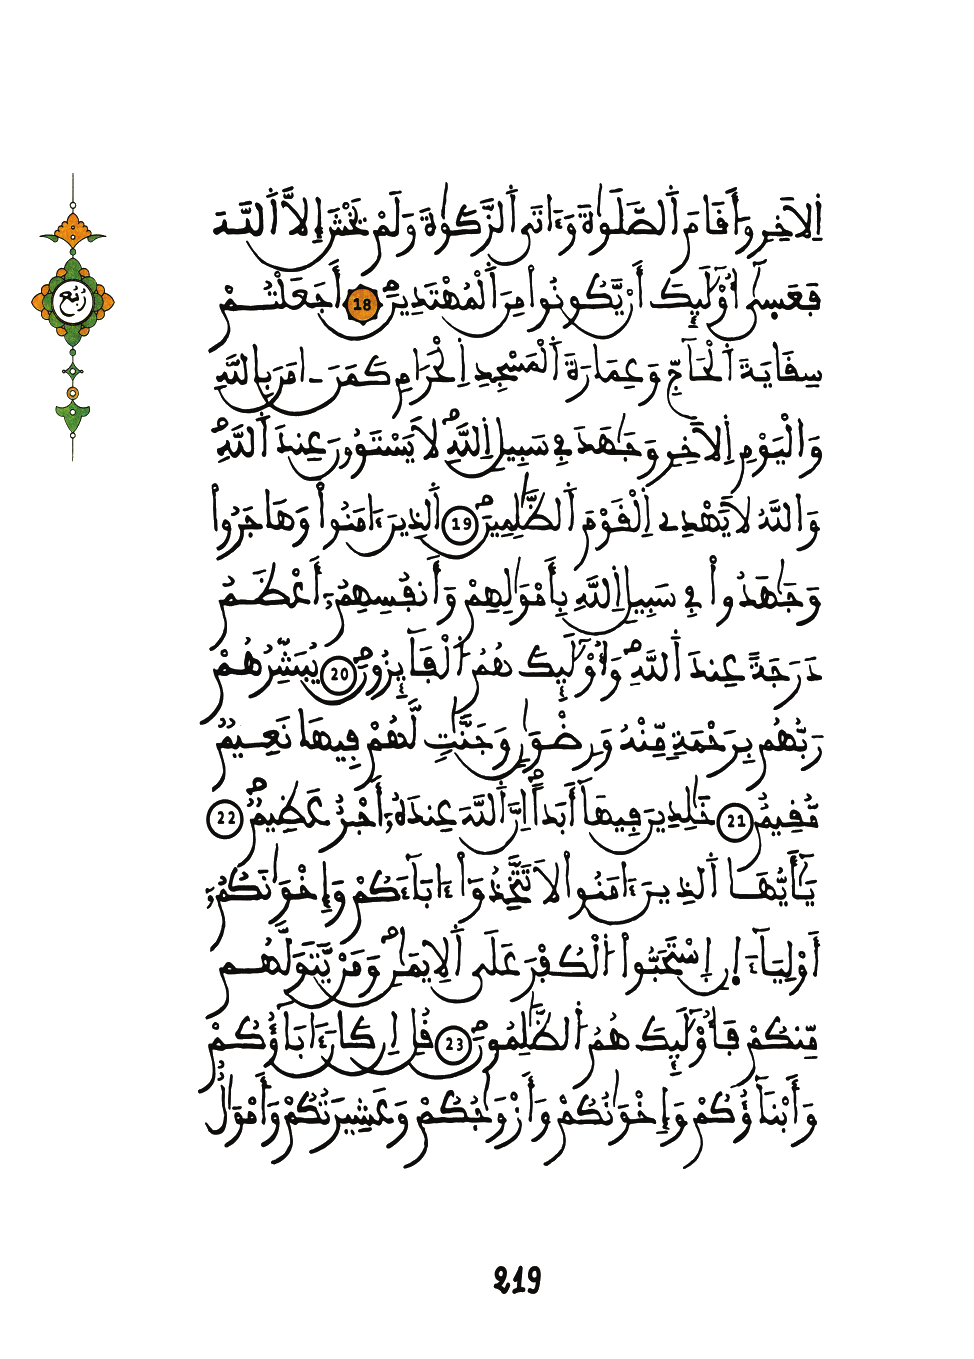 اِ۬لَاخِرِ وَأَقَامَ اَ۬لصَّلَوٰةَ وَءَاتَي اَ۬لزَّكَوٰةَ وَلَمْ يَخْشَ إِلَّا اَ۬للَّهَ
فَعَسٰٓي أُوْلَٰٓئِكَ أَنْ يَّكُونُواْ مِنَ اَ۬لْمُهْتَدِينَۖ 18 أَجَعَلْتُمْ
سِقَايَةَ اَ۬لْحَآجِّ وَعِمَارَةَ اَ۬لْمَسْجِدِ اِ۬لْحَرَامِ كَمَنَ اٰمَنَ بِاللَّهِ
وَالْيَوْمِ اِ۬لَاخِرِ وَجَٰهَدَ فِي سَبِيلِ اِ۬للَّهِۖ لَا يَسْتَوُۥنَ عِندَ اَ۬للَّهِۖ
وَاللَّهُ لَا يَهْدِي اِ۬لْقَوْمَ اَ۬لظَّٰلِمِينَۖ 19 اَ۬لذِينَ ءَامَنُواْ وَهَاجَرُواْ
وَجَٰهَدُواْ فِي سَبِيلِ اِ۬للَّهِ بِأَمْوَٰلِهِمْ وَأَنفُسِهِمُۥٓ أَعْظَمُ
دَرَجَةً عِندَ اَ۬للَّهِۖ وَأُوْلَٰٓئِكَ هُمُ اُ۬لْفَآئِزُونَۖ 20 يُبَشِّرُهُمْ
رَبُّهُم بِرَحْمَةٖ مِّنْهُ وَرِضْوَٰنٖ وَجَنَّٰتٖ لَّهُمْ فِيهَا نَعِيمٞ
مُّقِيمٌ 21 خَٰلِدِينَ فِيهَآ أَبَداًۖ اِنَّ اَ۬للَّهَ عِندَهُۥٓ أَجْرٌ عَظِيمٞۖ 22
يَٰٓأَيُّهَا اَ۬لذِينَ ءَامَنُواْ لَا تَتَّخِذُوٓاْ ءَابَآءَكُمْ وَإِخْوَٰنَكُمُۥٓ
أَوْلِيَآءَ اِ۪نِ اِ۪سْتَحَبُّواْ اُ۬لْكُفْرَ عَلَي اَ۬لِايمَٰنِۖ وَمَنْ يَّتَوَلَّهُم
مِّنكُمْ فَأُوْلَٰٓئِكَ هُمُ اُ۬لظَّٰلِمُونَۖ 23 قُلِ اِن كَانَ ءَابَآؤُكُمْ
وَأَبْنَآؤُكُمْ وَإِخْوَٰنُكُمْ وَأَزْوَٰجُكُمْ وَعَشِيرَتُكُمْ وَأَمْوَٰلٌ
رُبُع
219